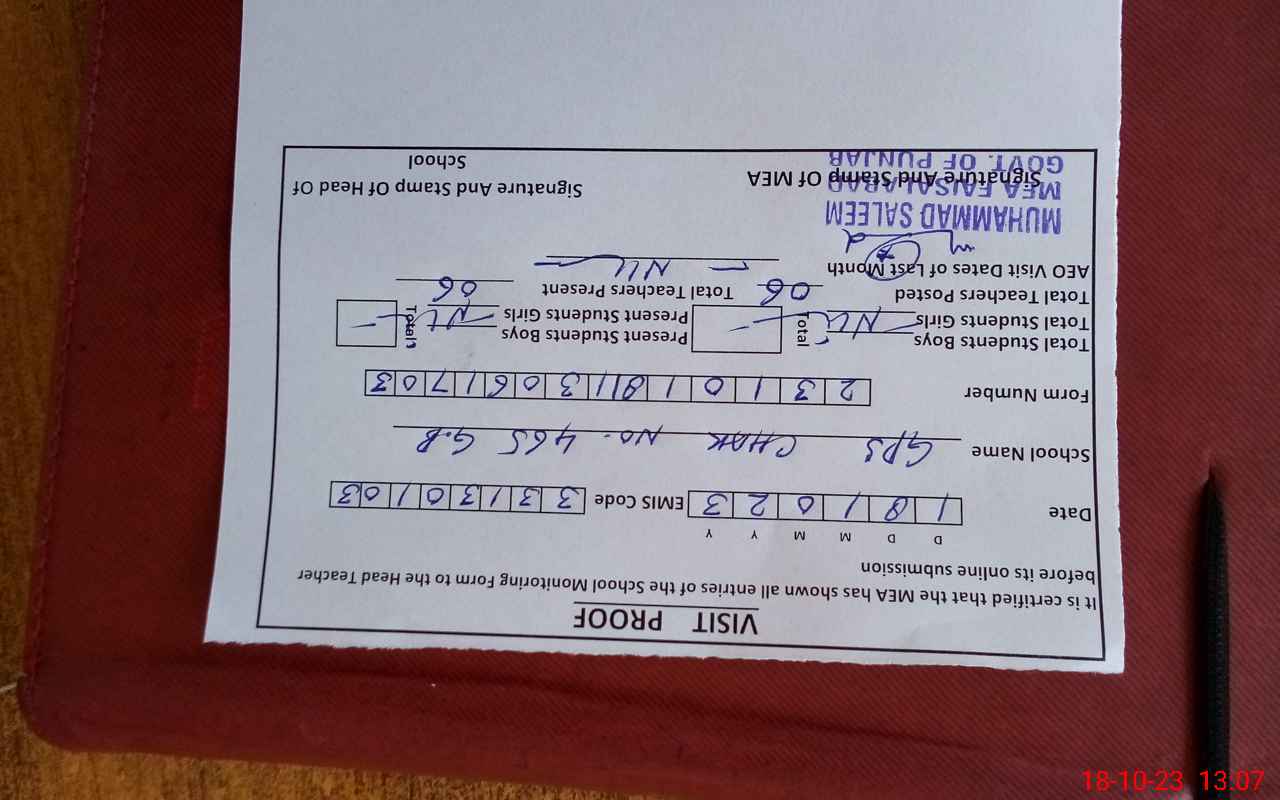 VISIT PROOF
It is certified that the MEA has shown all entries of the School Monitoring Form to the Head Teacher
before its online submission
D D M M Y Y
Date 1 8 1 0 2 3 EMIS Code 3 3 1 3 0 1 0 3
School Name GPS CHAK NO. 465 G.B
Form Number 2 3 1 0 1 8 1 1 3 0 6 1 7 0 3
Total Students Boys Total Present Students Boys Total
Total Students Girls NIL Present Students Girls NIL
Total Teachers Posted 06 Total Teachers Present 06
AEO Visit Dates of Last Month NIL
MUHAMMAD SALEEM
MEA FAISALABAD
GOVT. OF PUNJAB
Signature And Stamp Of MEA Signature And Stamp Of Head Of
School
18-10-23 13:07